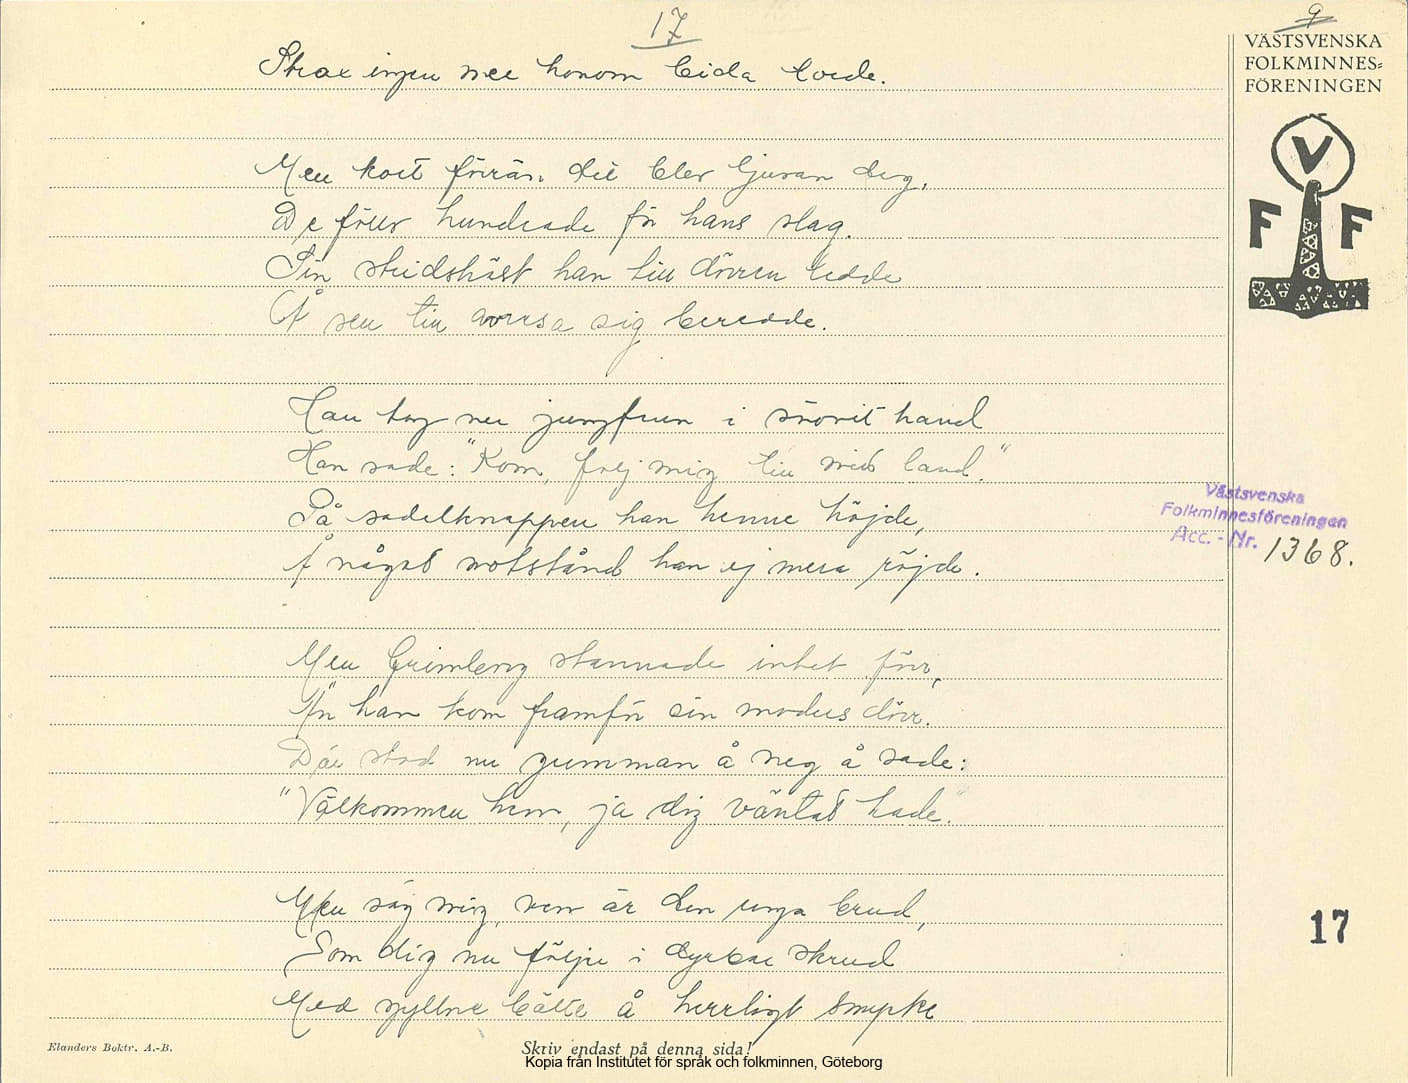 17
9
VÄSTSVENSKA
FOLKMINNES=
FÖRENINGEN
V
F F
Strax ingen mer honom bida torde.
Men kort förrän det blev ljusan dag,
De föllo hundrade för hans slag.
Sin stridshäst han till dörren ledde
Å sen till avresa sig beredde.
Han tog nu jungfrun i snövit hand
Han sade: "Kom, följ mig till mitt land."
På sadelknappen han henne höjde,
Å något motstånd han ej mera röjde.
Men Grimborg stannade intet förr,
Än han kom framför sin moders dörr.
Där stod nu gumman å neg å sade:
"Välkommen hem, ja dig väntat hade.
Men säg mig, vem är den unga brud,
Som dig nu följer i dyrbar skrud
Med gyllne bälte å herrligt smycke
Västsvenska
Folkminnesföreningen
Acc. - Nr. 1368.
17
Elanders Boktr. A.-B.
Skriv endast på denna sida!
Kopia från Institutet för språk och folkminnen, Göteborg